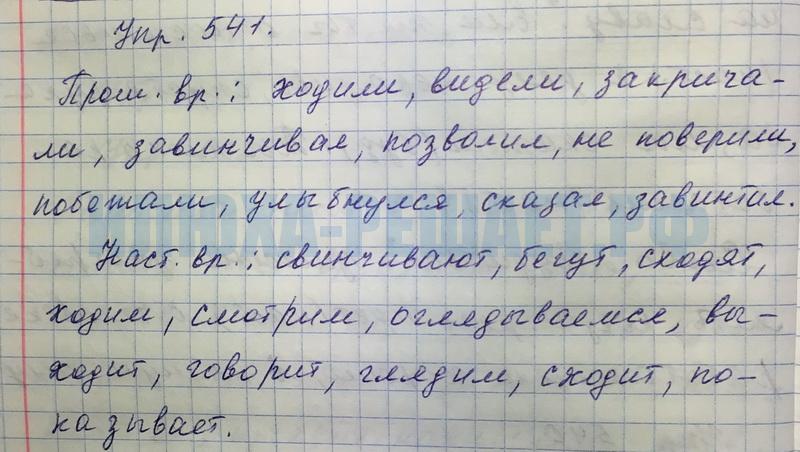 Упр. 541.
Прош. вр.: ходили, видели, закрича-
ли, завинчивал, позволил, не поверили,
побежали, улыбнулся, сказал, завинтил.
ИЛЮХА-РЕШАЕТ.РФ
Наст. вр.: свинчивают, бегут, сходят,
ходим, смотрим, оглядываемся, вы-
ходит, говорит, глядим, сходит, по-
казывает.